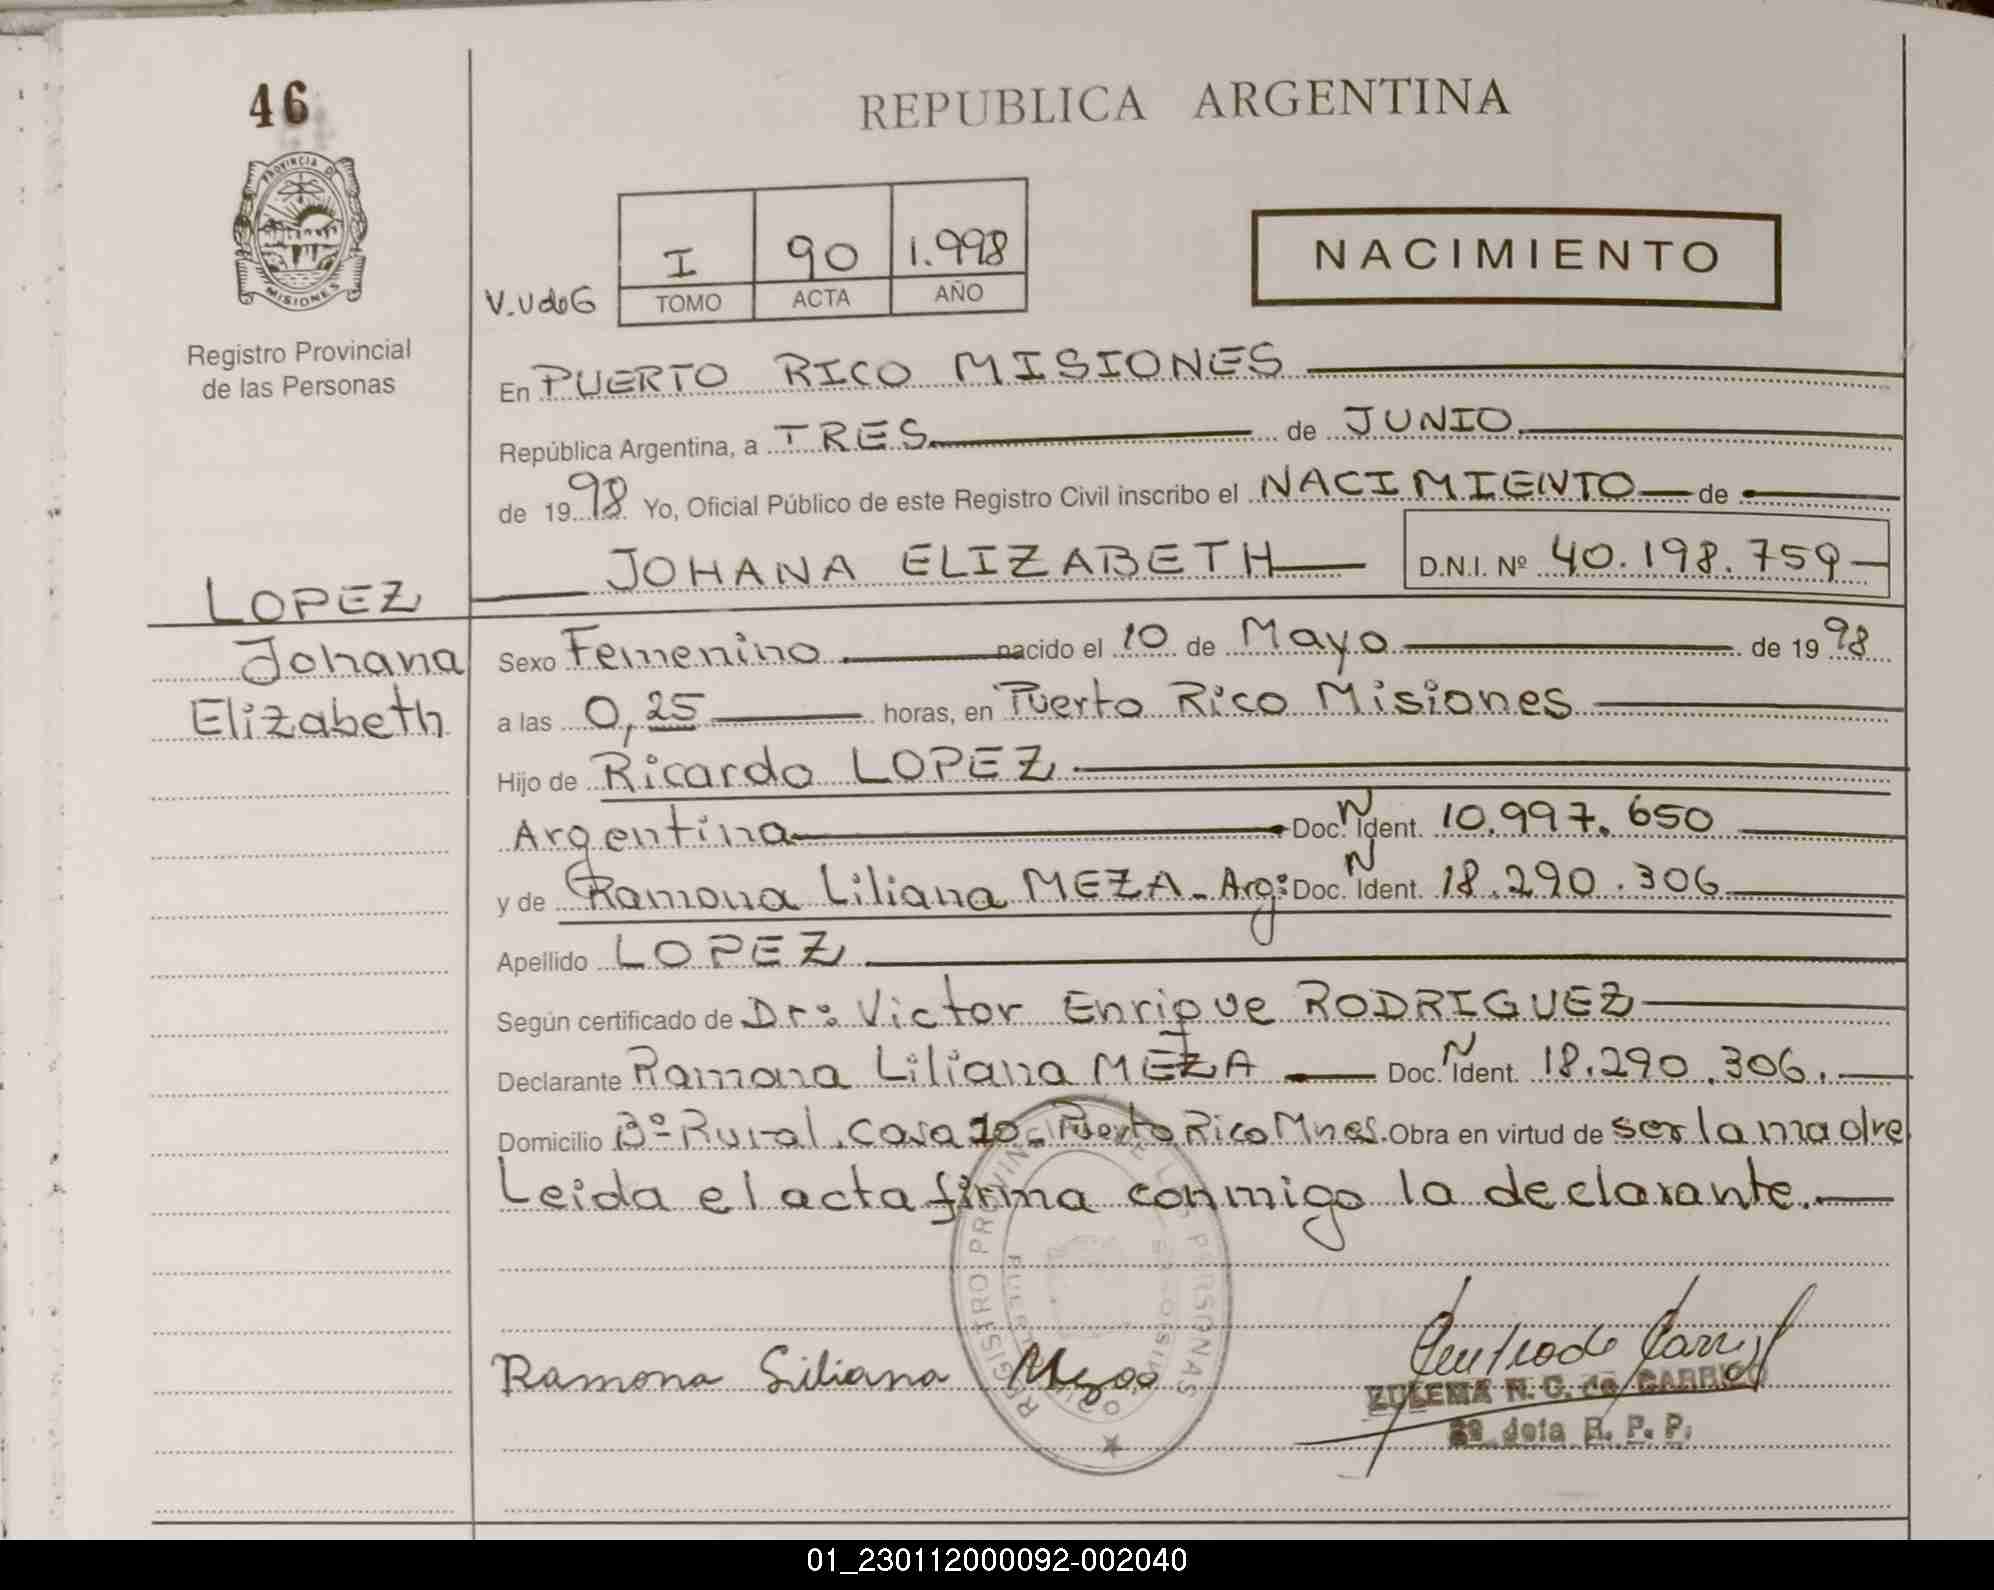 46
REPUBLICA ARGENTINA
PROVINCIA D
MISIONES
Registro Provincial
de las Personas
V. UdeG
I 90 1.998
TOMO ACTA AÑO
NACIMIENTO
En PUERTO RICO MISIONES
República Argentina, a TRES de JUNIO
de 1998 Yo, Oficial Público de este Registro Civil inscribo el NACIMIENTO de
JOHANA ELIZABETH D.N.I. Nº 40.198.759
LOPEZ
Johana
Elizabeth
Sexo Femenino nacido el 10 de Mayo de 1998
a las 0,25 horas, en Puerto Rico Misiones
Hijo de Ricardo LOPEZ
Argentina Doc. N Ident. 10.997.650
y de Ramona Liliana MEZA - Arg: Doc. N Ident. 18.290.306
Apellido LOPEZ
Según certificado de Dr: Victor Enrique RODRIGUEZ
Declarante Ramona Liliana MEZA Doc. N Ident. 18.290.306.
Domicilio Bº Rural. Casa 10 - Puerto Rico Mnes. Obra en virtud de ser la madre
Leida el acta firma conmigo la declarante.
REGISTRO PROVINCIAL DE LAS PERSONAS
Ramona Liliana Meza
ZULEMA N. G. de CARRI
2º Jefa R. P. P.
01_230112000092-002040